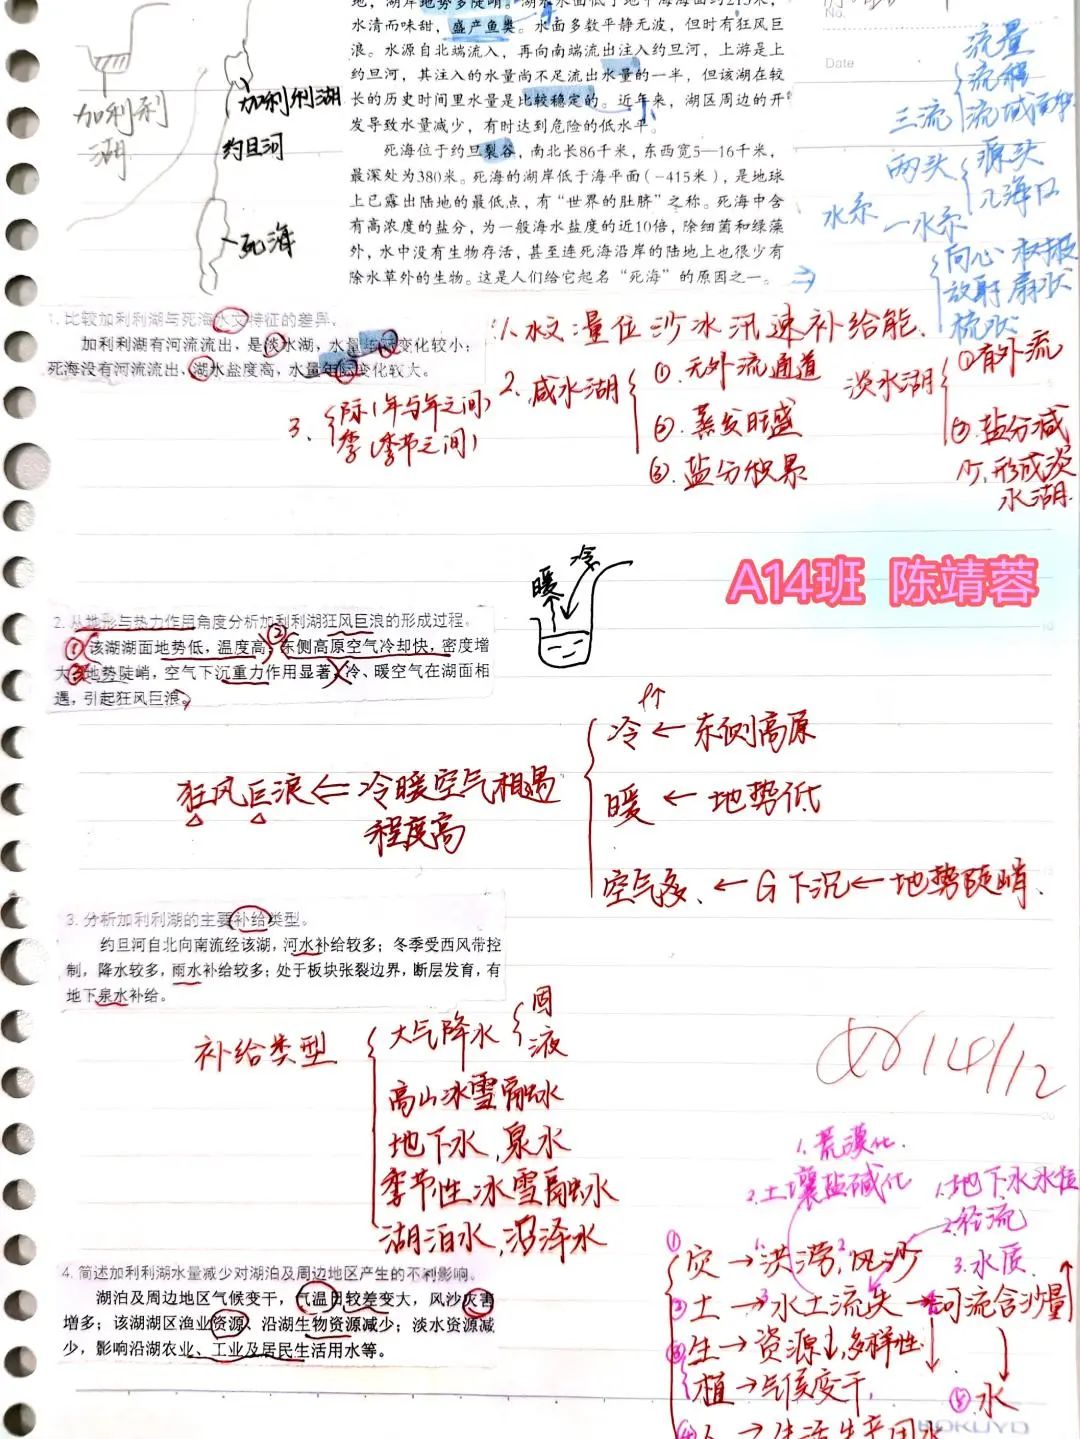 地，湖岸地势多陡峭。湖水水面低于地中海海面约213米，
水清而味甜，盛产鱼类。水面多数平静无波，但时有狂风巨
浪。水源自北端流入，再向南端流出注入约旦河，上游是上
约旦河，其注入的水量尚不足流出水量的一半，但该湖在较
长的历史时间里水量是比较稳定的。近年来，湖区周边的开
发导致水量减少，有时达到危险的低水平。
死海位于约旦裂谷，南北长86千米，东西宽5—16千米，
最深处为380米。死海的湖岸低于海平面（-415米），是地球
上已露出陆地的最低点，有“世界的肚脐”之称。死海中含
有高浓度的盐分，为一般海水盐度的近10倍，除细菌和绿藻
外，水中没有生物存活，甚至连死海沿岸的陆地上也很少有
除水草外的生物。这是人们给它起名“死海”的原因之一。
加利利
湖
加利利湖
约旦河
死海
No.
Date
三流
流量
流程
流域面积
水系
两头
源头
入海口
一水系
向心 树枝
放射 扇状
梳状
1. 比较加利利湖与死海水文特征的差异。
加利利湖有河流流出，是淡水湖，水量年际变化较小；
死海没有河流流出、湖水盐度高，水量年际变化较大。
1.水文：量位沙冰汛速补给能.
2.咸水湖
①.无外流通道
②.蒸发旺盛
③.盐分积累
淡水湖
①有外流
②.盐分减
少,形成淡
水湖.
3.
际(年与年之间)
季(季节之间)
A14班 陈靖蓉
冷
暖
2. 从地形与热力作用角度分析加利利湖狂风巨浪的形成过程。
①该湖湖面地势低，温度高；②东侧高原空气冷却快，密度增
大；③地势陡峭，空气下沉重力作用显著；冷、暖空气在湖面相
遇，引起狂风巨浪。
狂风巨浪⇐冷暖空气相遇
程度高
ρ↑
冷←东侧高原
暖←地势低
空气多.←G下沉←地势陡峭.
3. 分析加利利湖的主要补给类型。
约旦河自北向南流经该湖，河水补给较多；冬季受西风带控
制，降水较多，雨水补给较多；处于板块张裂边界，断层发育，有
地下泉水补给。
补给类型
大气降水
固
液
高山冰雪融水
地下水,泉水
季节性冰雪融水
湖泊水,沼泽水
14/12
4. 简述加利利湖水量减少对湖泊及周边地区产生的不利影响。
湖泊及周边地区气候变干，气温日较差变大，风沙灾害
增多；该湖湖区渔业资源、沿湖生物资源减少；淡水资源减
少，影响沿湖农业、工业及居民生活用水等。
1.荒漠化.
2.土壤盐碱化
1.地下水水位
2.径流
3.水质.
①灾→1.洪涝,2.风沙
②土→3水土流失→河流含沙量↑
③生→资源↓,多样性
植→气候变干,
④人→生活生产用水
⑤水
KOKUYO